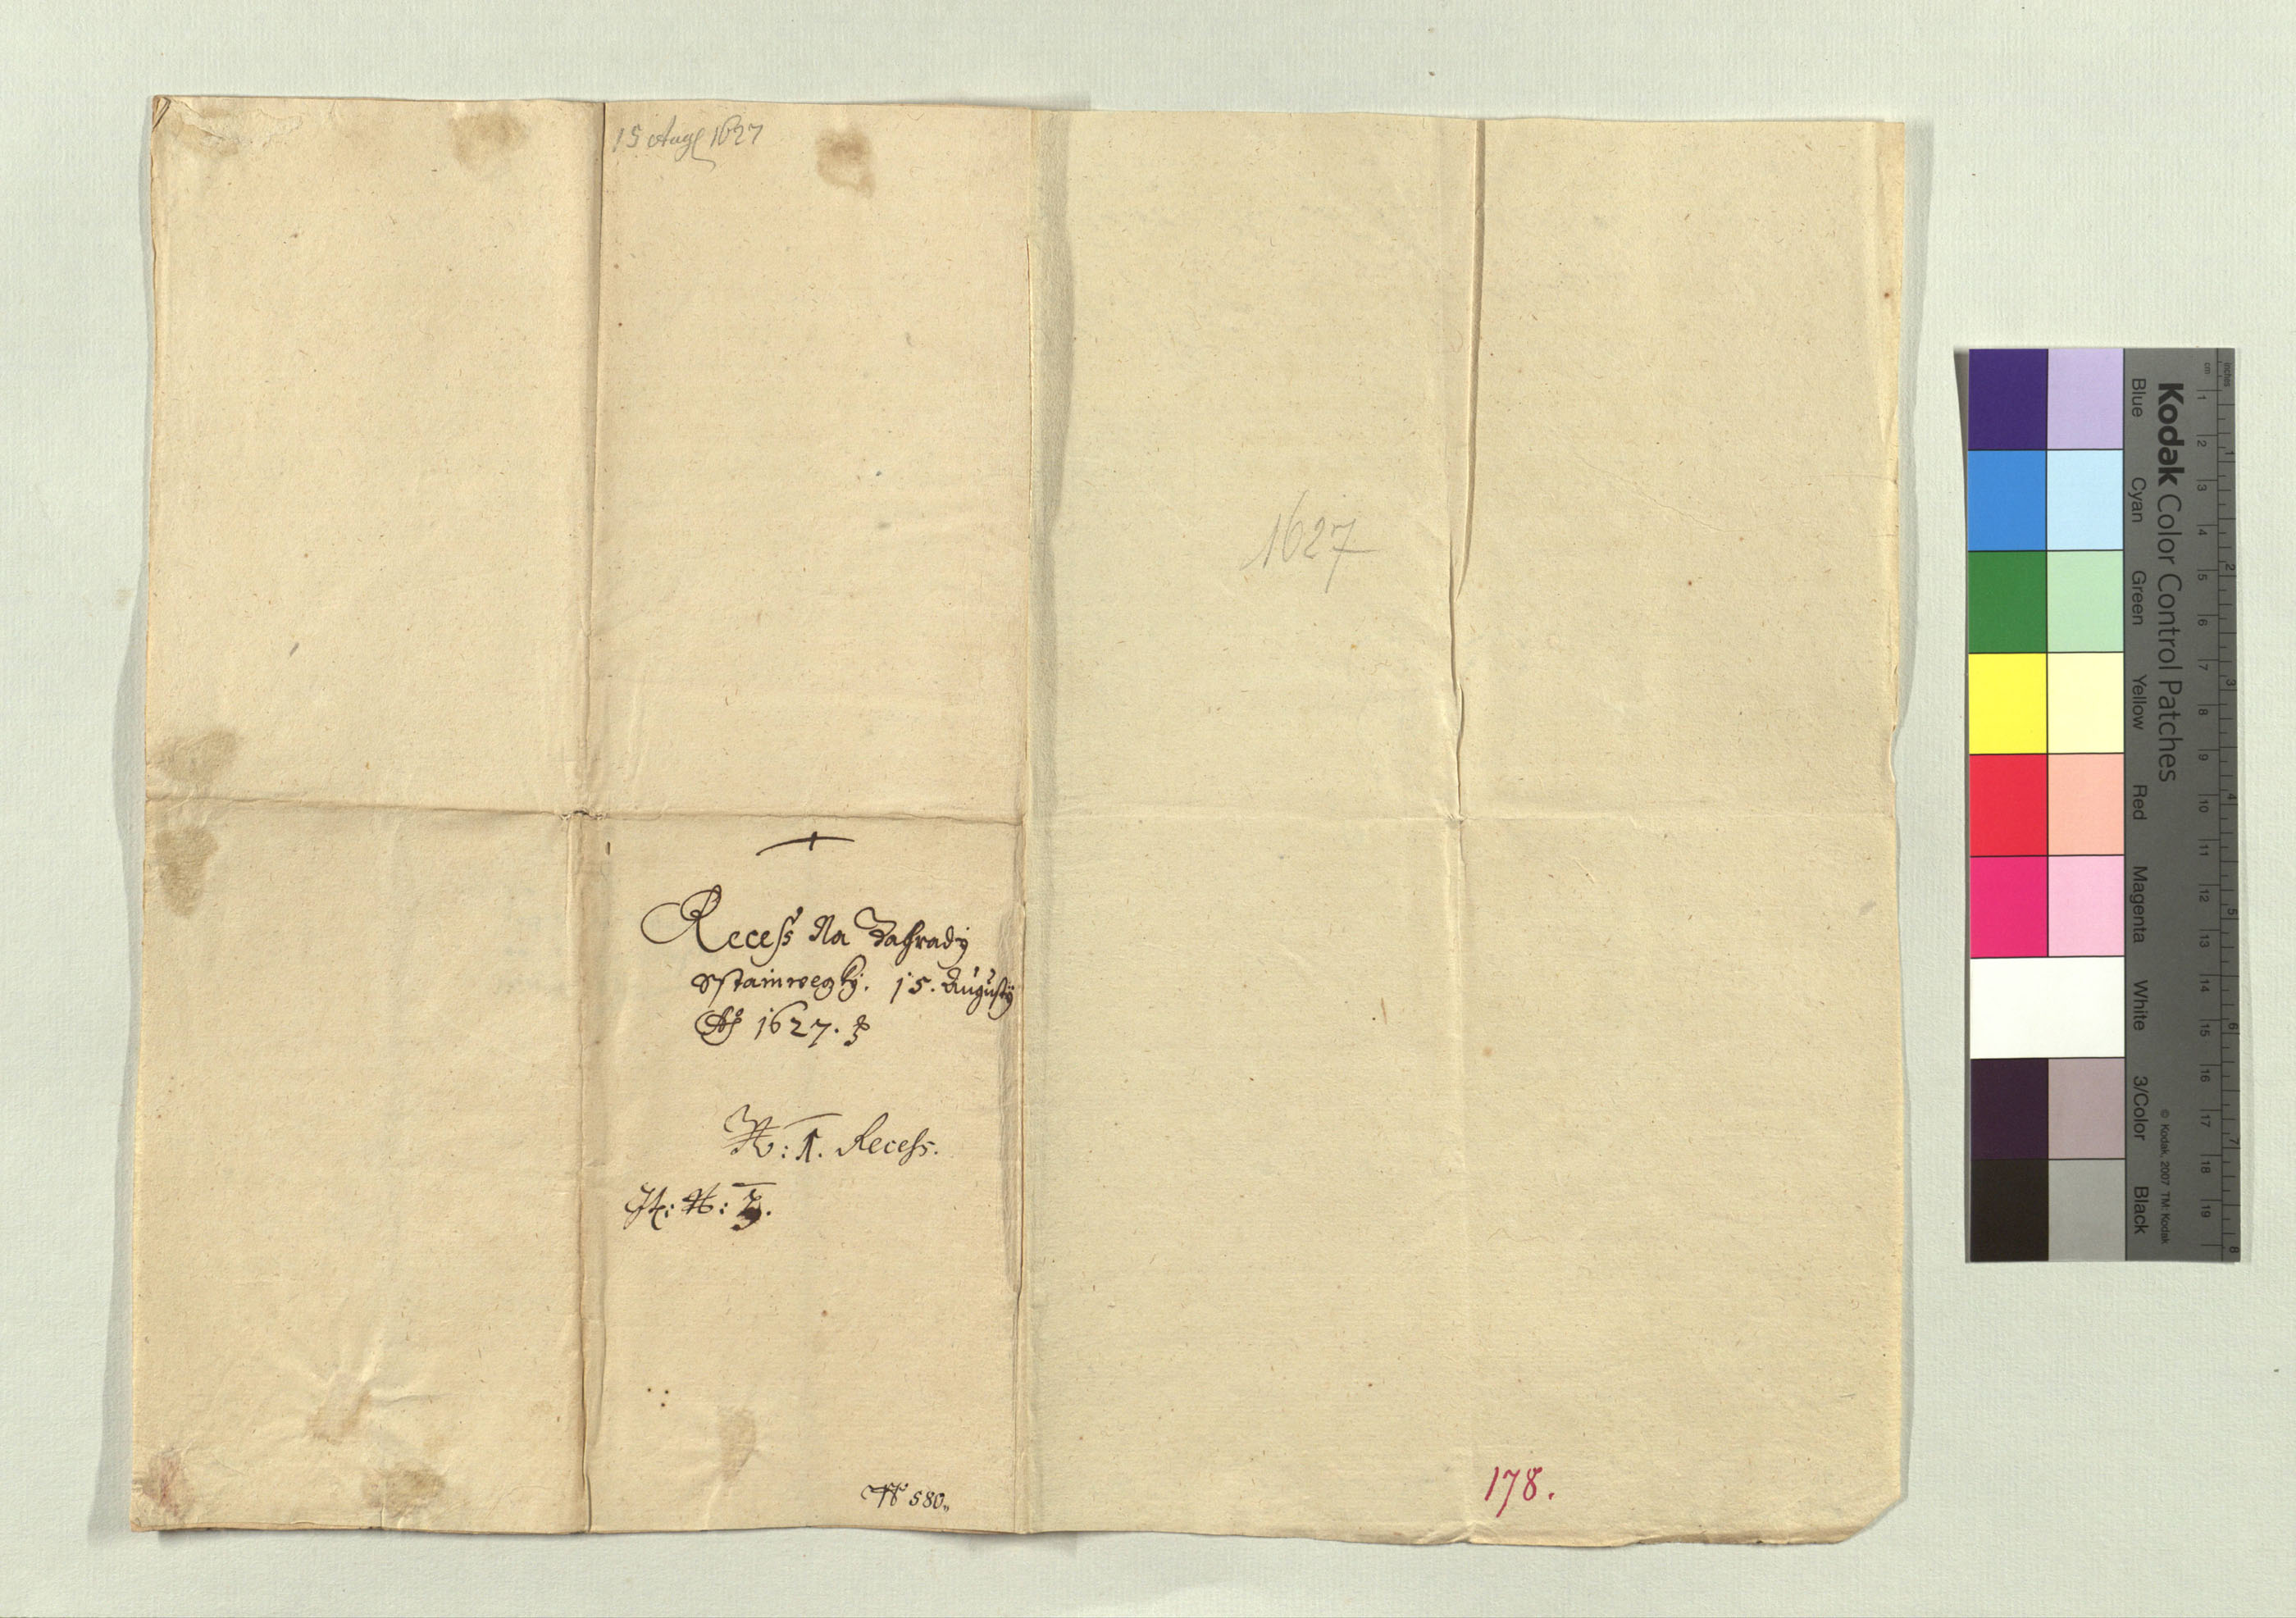 15 Aug 1627
1627
Recess Na Zahrady
Sstainwegky. 15. Augusty
Aº 1627.
N: 1. Recess.
N:
Nº 580.
178.
Kodak Color Control Patches
Blue Cyan Green Yellow Red Magenta White 3/Color Black
© Kodak, 2007 TM: Kodak
cm 1 2 3 4 5 6 7 8 9 10 11 12 13 14 15 16 17 18 19
inches 1 2 3 4 5 6 7 8